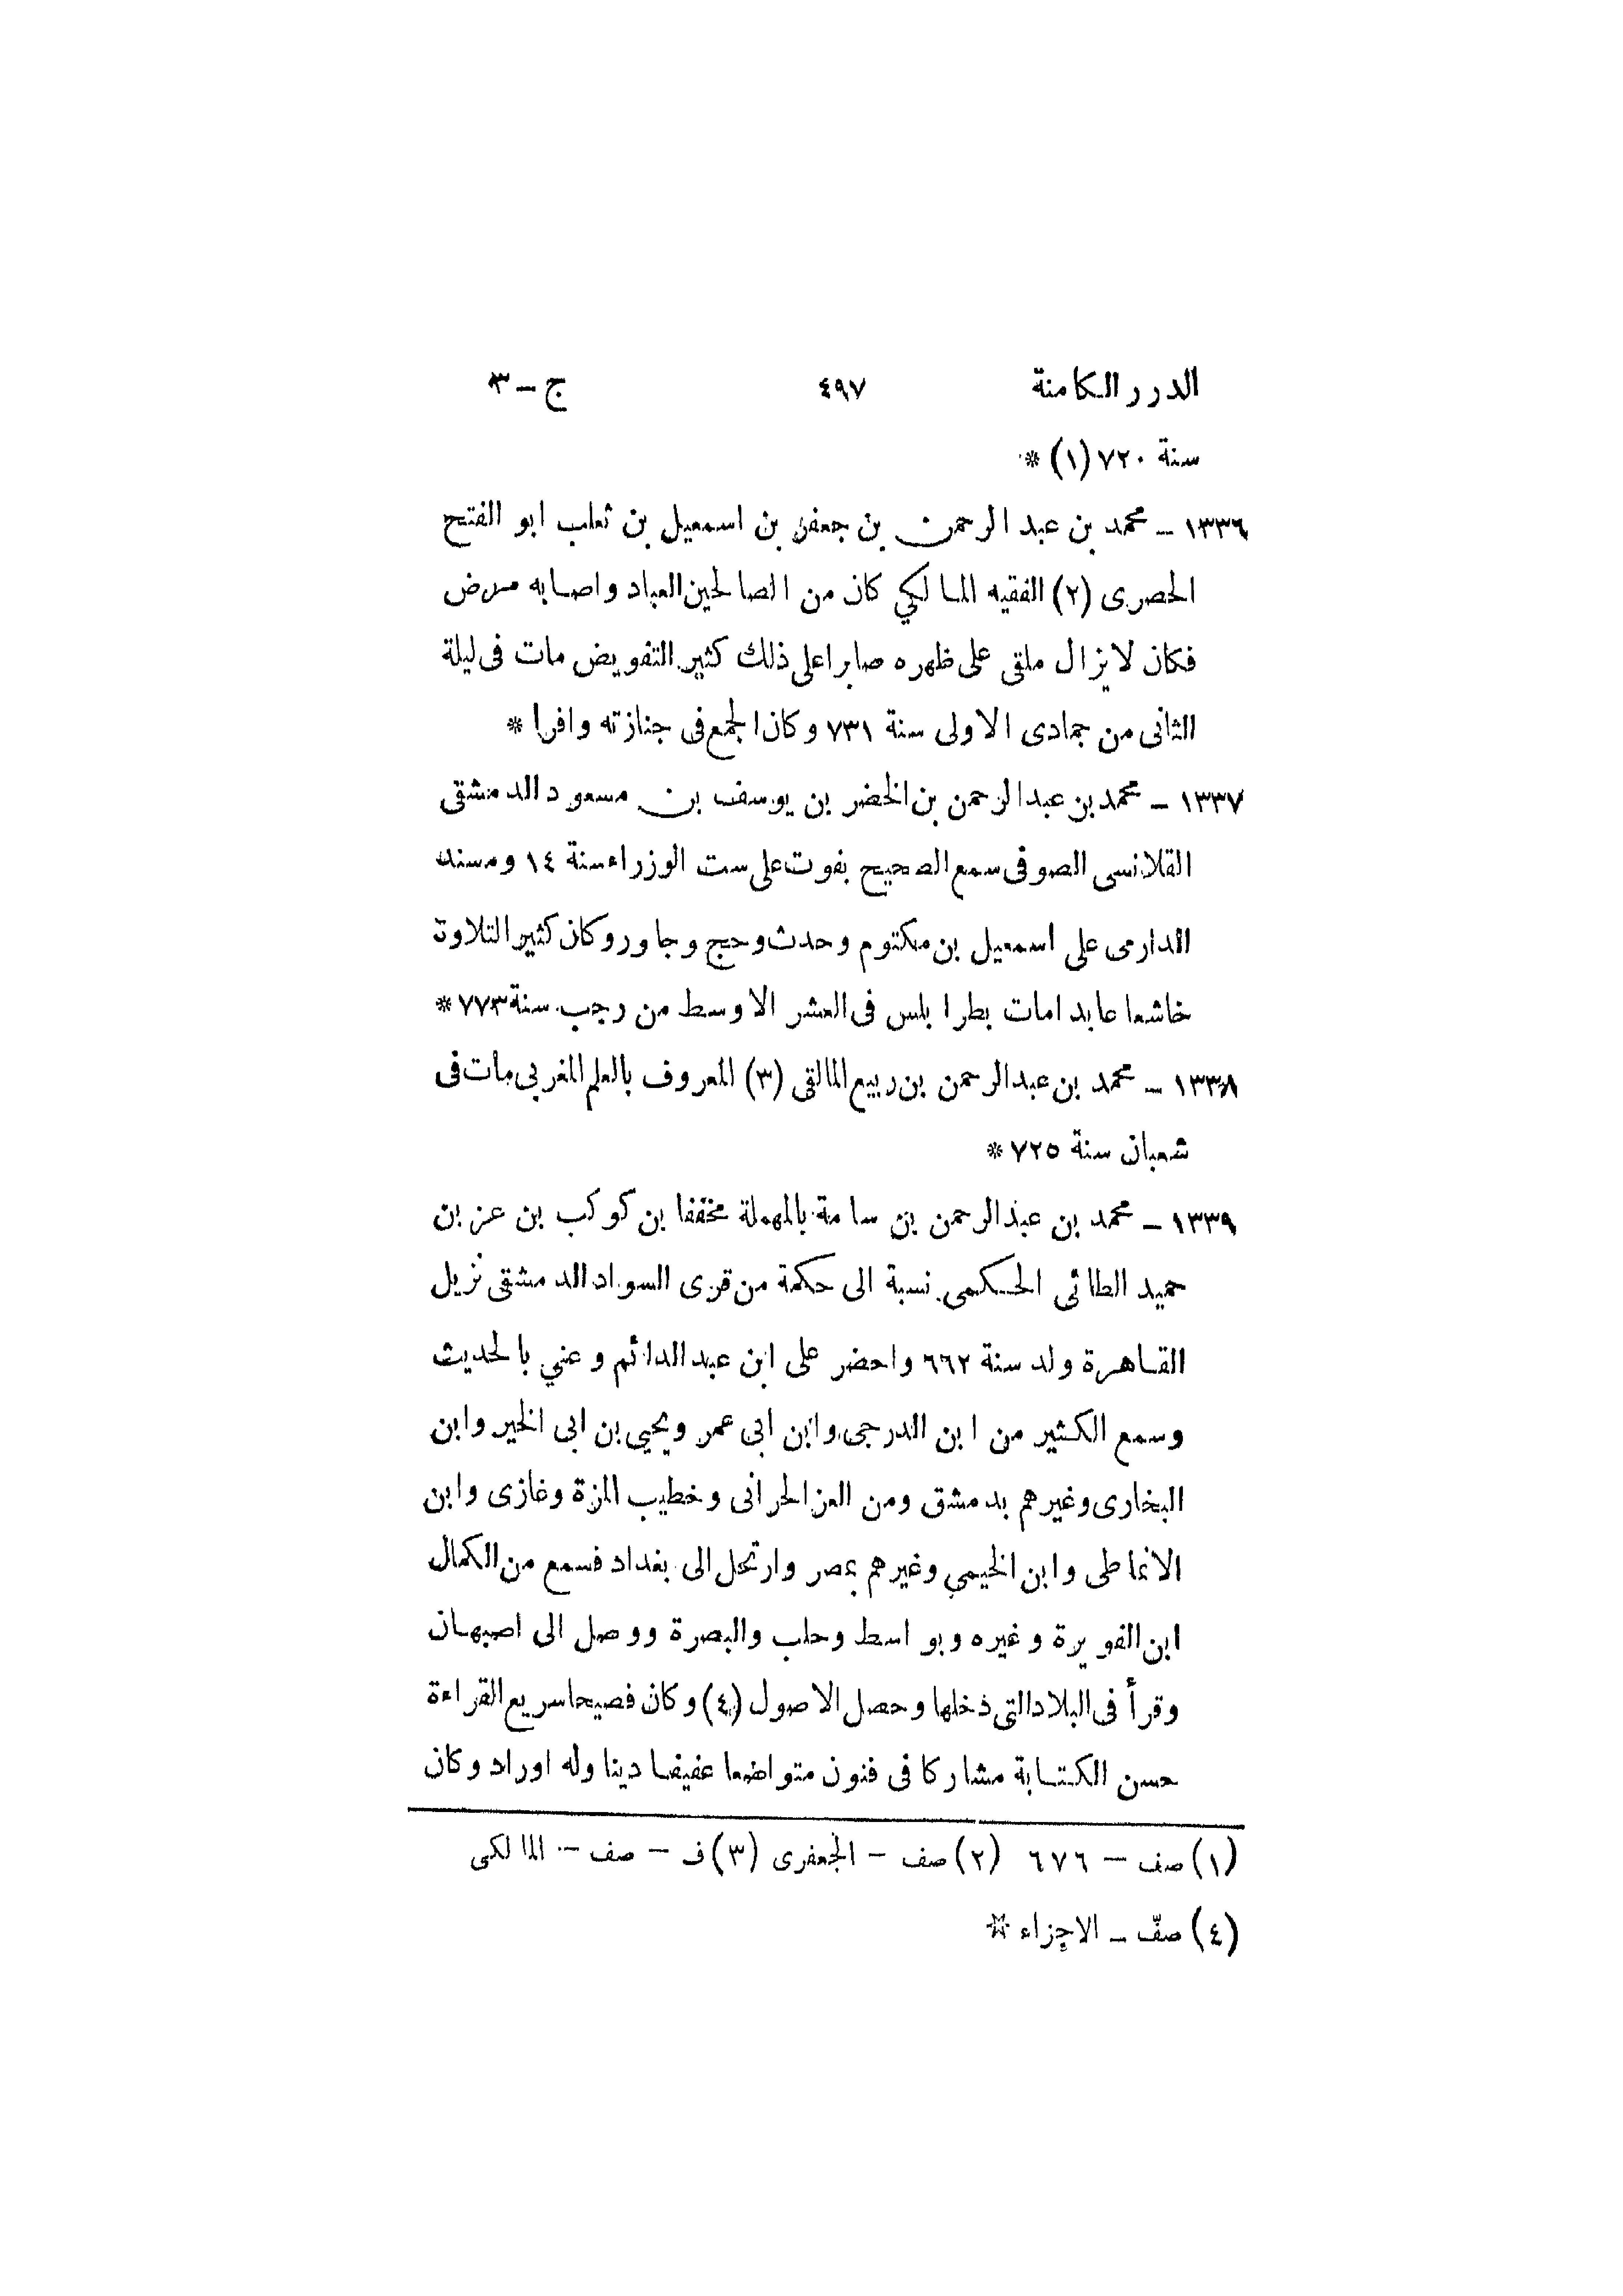 الدرر الكامنة ٤٩٧ ج - ٣
سنة ٧٢٠ (١) *
١٣٣٦ - محمد بن عبد الرحمن بن جعفر بن اسمعيل بن ثعلب ابو الفتح
الحصرى (٢) الفقيه المالكي كان من الصالحين العباد واصابه مرض
فكان لا يزال ملقى على ظهره صابرا على ذلك كثير التفويض مات فى ليلة
الثانى من جمادى الاولى سنة ٧٣١ وكان الجمع فى جنازته وافرا *
١٣٣٧ - محمد بن عبد الرحمن بن الخضر بن يوسف بن مسعود الدمشقى
القلانسى الصوفى سمع الصحيح بفوت على ست الوزراء سنة ١٤ ومسند
الدارمى على اسمعيل بن مكتوم وحدث وحج وجاور وكان كثير التلاوة
خاشعا عابدا مات بطرابلس فى العشر الاوسط من رجب سنة ٧٧٣ *
١٣٣٨ - محمد بن عبد الرحمن بن ربيع المالقى (٣) المعروف بالعلم المغربى مات فى
شعبان سنة ٧٢٥ *
١٣٣٩ - محمد بن عبد الرحمن بن سامة بالمهملة مخففا بن كوكب بن عز بن
حميد الطائى الحكمى نسبة الى حكمة من قرى السواد الدمشقى نزيل
القاهرة ولد سنة ٦٦٢ واحضر على ابن عبد الدائم وعني بالحديث
وسمع الكثير من ابن الدرجى وابن ابى عمر ويحيى بن ابى الخير وابن
البخارى وغيرهم بدمشق ومن العز الحرانى وخطيب المزة وغازى وابن
الانماطى وابن الخيمي وغيرهم بمصر وارتحل الى بغداد فسمع من الكمال
ابن الفويرة وغيره وبواسط وحلب والبصرة ووصل الى اصبهان
وقرأ فى البلاد التى دخلها وحصل الاصول (٤) وكان فصيحا سريع القراءة
حسن الكتابة مشاركا فى فنون متواضعا عفيفا دينا وله اوراد وكان
(١) صف - ٦٧٦ (٢) صف - الجعفرى (٣) ف - صف - المالكى
(٤) صف - الاجزاء *